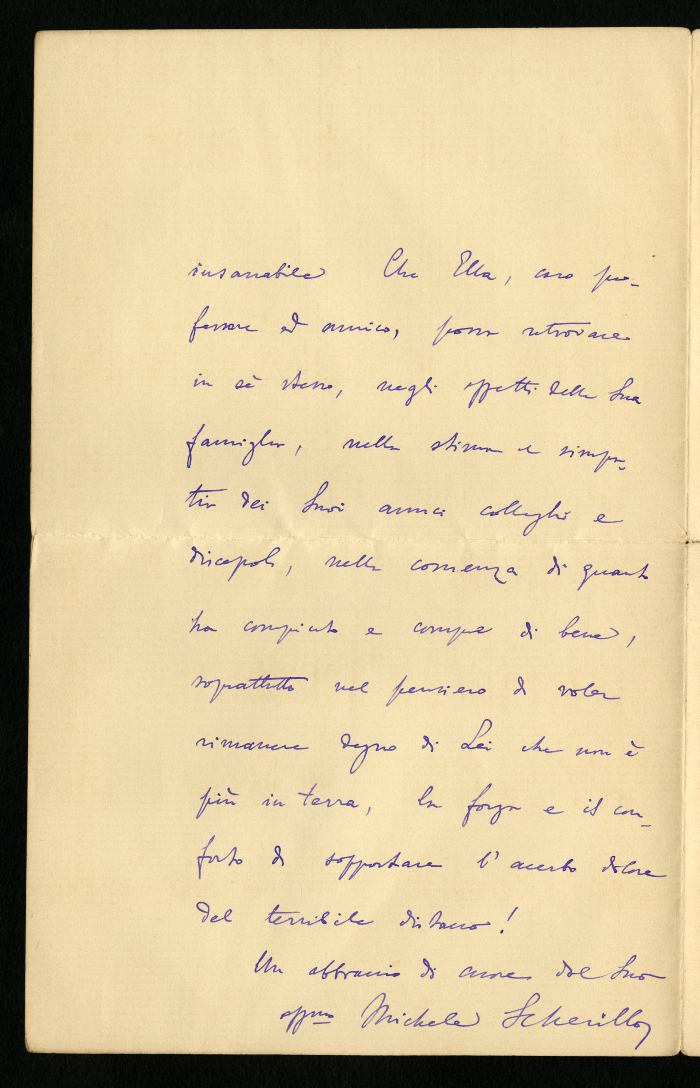 insanabile Che Ella, caro pro-
fessore ed amico, possa ritrovare
in sè stesso, negli affetti della Sua
famiglia, nella stima e simpa-
tia dei Suoi amici colleghi e
discepoli, nella coscienza di quanto
ha compiuto e compie di bene,
soprattutto nel pensiero di voler
rimanere degno di Lei che non è
più in terra, la forza e il con-
forto di sopportare l'acerbo dolore
del terribile distacco!
Un abbraccio di cuore dal Suo
affmo Michele Scherillo